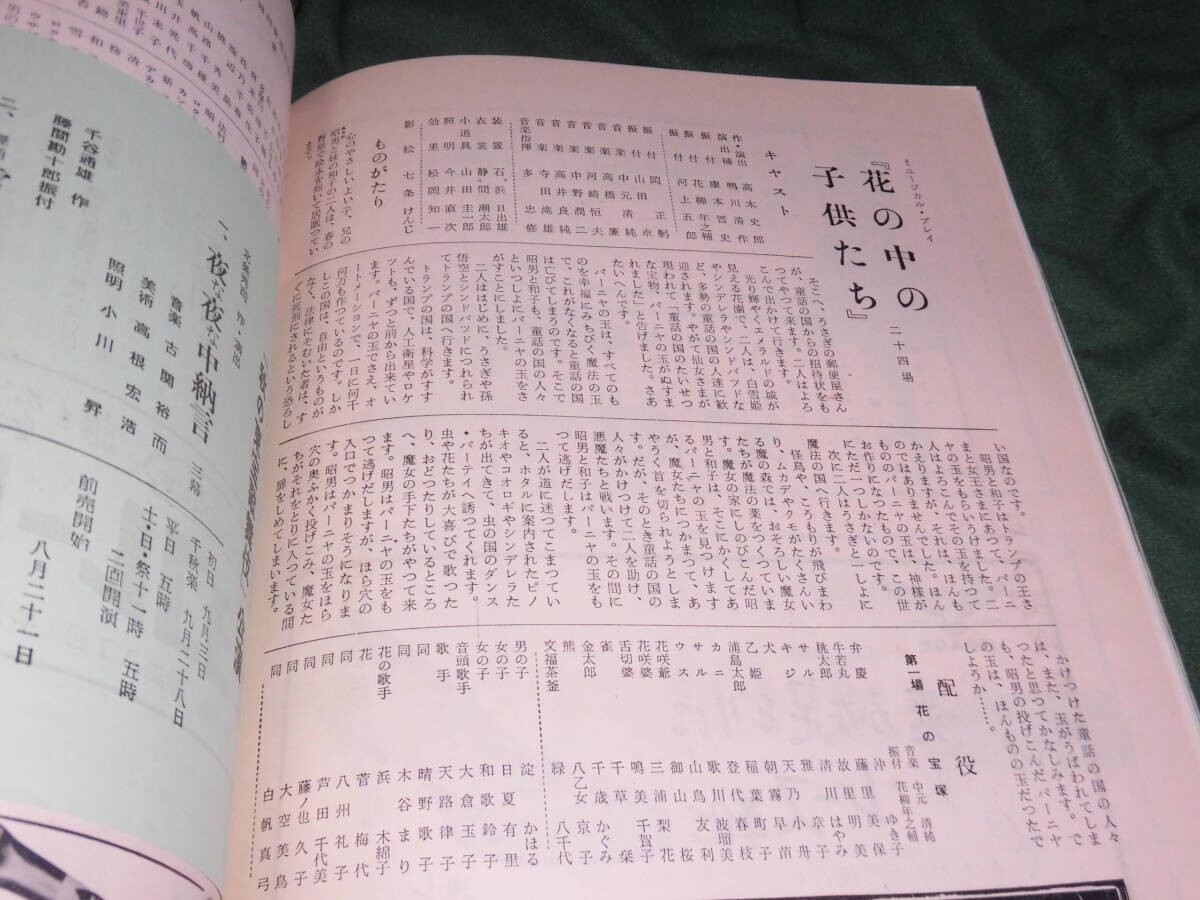 ミュージカル・プレイ
『花の中の
子供たち』
二十四場
キャスト
作・演出 高木史郎
演出補 鴨川清作
振付 康本晋史
振付 花柳年之輔
振付 河上五郎
振付 岡正躬
振付 山田卓
音楽 中元清純
音楽 高橋廉
音楽 河崎恒夫
音楽 中野潤二
音楽 高井良純
音楽 寺田滝雄
音楽指揮 多忠修
装置 石浜日出雄
衣裳 静間潮太郎
小道具 山田圭一郎
照明 今井直次
効果 松岡知一
影絵 七条けんじ
ものがたり
心のやさしいよい子、兄の
昭男と妹の和子の二人は、春の
野原で絵本を抱いて居眠つてい
ます。
そこへ、うさぎの郵便屋さん
が、童話の国からの招待状をも
つてやつて来ます。二人はよろ
こんで出かけて行きます。
光り輝やくエメラルドの城が
見える花園で、二人は、白雪姫
やシンデレラやシンドバツドな
ど、多勢の童話の国の人達に歓
迎されます。やがて仙女さまが
現われて「童話の国のたいせつ
な宝物、パーニヤの玉がぬすま
れました」と告げました。さあ
たいへんです。
パーニヤの玉は、すべてのも
のを幸福にみちびく魔法の玉
で、これがなくなると童話の国
は亡びてしまうのです。そこで
昭男と和子も、童話の国の人々
といつしよにパーニヤの玉をさ
がすことにしました。
二人ははじめに、うさぎや孫
悟空とシンドバツドにつれられ
てトランプの国へ行きます。
トランプの国は、科学がすす
んでいる国で、人工衛星やロケ
ツトも、ずつと前から出来てい
ます。パーニヤの玉でさえ、オ
ートメーシヨンで、一日に何千
何万も作つているのです。しか
しこの国は、自由というものが
なく、法律にそむいた者は、す
ぐに死刑にされるという恐ろし
い国なのです。
昭男と和子はトランプの王さ
まと女王さまにあつて、パーニ
ヤの玉をもらいうけました。二
人はよろこんでその玉を持つて
かえりますが、それは、ほんも
のではありませんでした。ほん
もののパーニヤの玉は、神様が
お作りになつたもので、この世
にただ一つしかないのです。
次に二人はうさぎと一しよに
魔法の国へ行きます。
怪鳥や、こうもりが飛びまわ
り、ムカデやクモがたくさんい
る魔の森では、おそろしい魔女
たちが魔法の薬をつくつていま
す。魔女の家にしのびこんだ昭
男と和子は、そこにかくしてあ
るパーニヤの玉を見つけます
が、魔女たちにつかまつて、あ
やうく首を切られようとしま
す。だが、そのとき童話の国の
人々がかけつけて二人を助け、
悪魔たちと戦います。その間に
昭男と和子はパーニヤの玉をも
つて逃げだします。
二人が道に迷つてこまつてい
ると、ホタルに案内されたピノ
キオやコオロギやシンデレラた
ちが出てきて、虫の国のダンス
・パーテイへ誘つてくれます。
虫や花たちが大喜びで歌つた
り、おどつたりしているところ
へ、魔女の手下たちがやつて来
ます。昭男はパーニヤの玉をも
つて逃げだしますが、ほら穴の
入口でつかまりそうになりま
す。昭男はパーニヤの玉をほら
穴の奥ふかく投げこみ、魔女た
ちがそれをとりに入つている間
に、扉をしめてしまいます。
かけつけた童話の国の人々
は、また、玉がうばわれてしま
つたと思つてかなしみます。で
も、昭男の投げこんだパーニヤ
の玉は、ほんものの玉だつたで
しようか……。
配役
第一場 花の宝塚
音楽 中元清純
振付 花柳年之輔
弁慶 沖ゆき子
牛若丸 藤里美保
桃太郎 故里明美
サル 清川はやみ
キジ 雅章子
犬 天乃小舟
乙姫 朝霧早苗
浦島太郎 稲葉町子
カニ 登代春枝
ウス 歌川波瑠美
サル 山鳥友利
花咲爺 御山桜
花咲婆 三浦梨花
舌切婆 鳴美千賀子
雀 千草栞
金太郎 千歳かぐみ
熊 八乙女京子
文福茶釜 緑八千代
男の子 淀かほる
女の子 日夏有里
女の子 和歌鈴子
音頭歌手 大倉玉子
歌手 天路律子
同 晴野歌子
同 木谷まり
花の歌手 浜木綿子
花 菅梅代
同 八州礼子
同 芦田千代美
同 藤ノ也久子
同 大空美鳥
同 白帆真弓
北条秀司 作・演出
一、夜な夜な中納言 三幕
音楽 古関裕而
美術 高根宏浩
照明 小川昇
千谷道雄 作
藤間勘十郎振付
初日 九月三日
千秋楽 九月二十八日
平日 五時
土・日・祭十一時 五時
二回開演
前売開始 八月二十一日